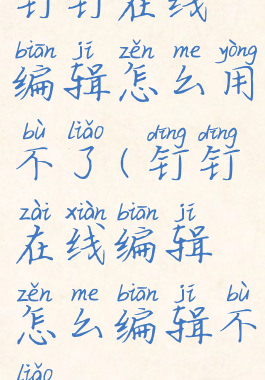 钉钉在线
biān jí zěn me yòng
编辑怎么用
bù liǎo dīng dīng
不了(钉钉
zài xiàn biān jí
在线编辑
zěn me biān jí bù
怎么编辑不
liǎo